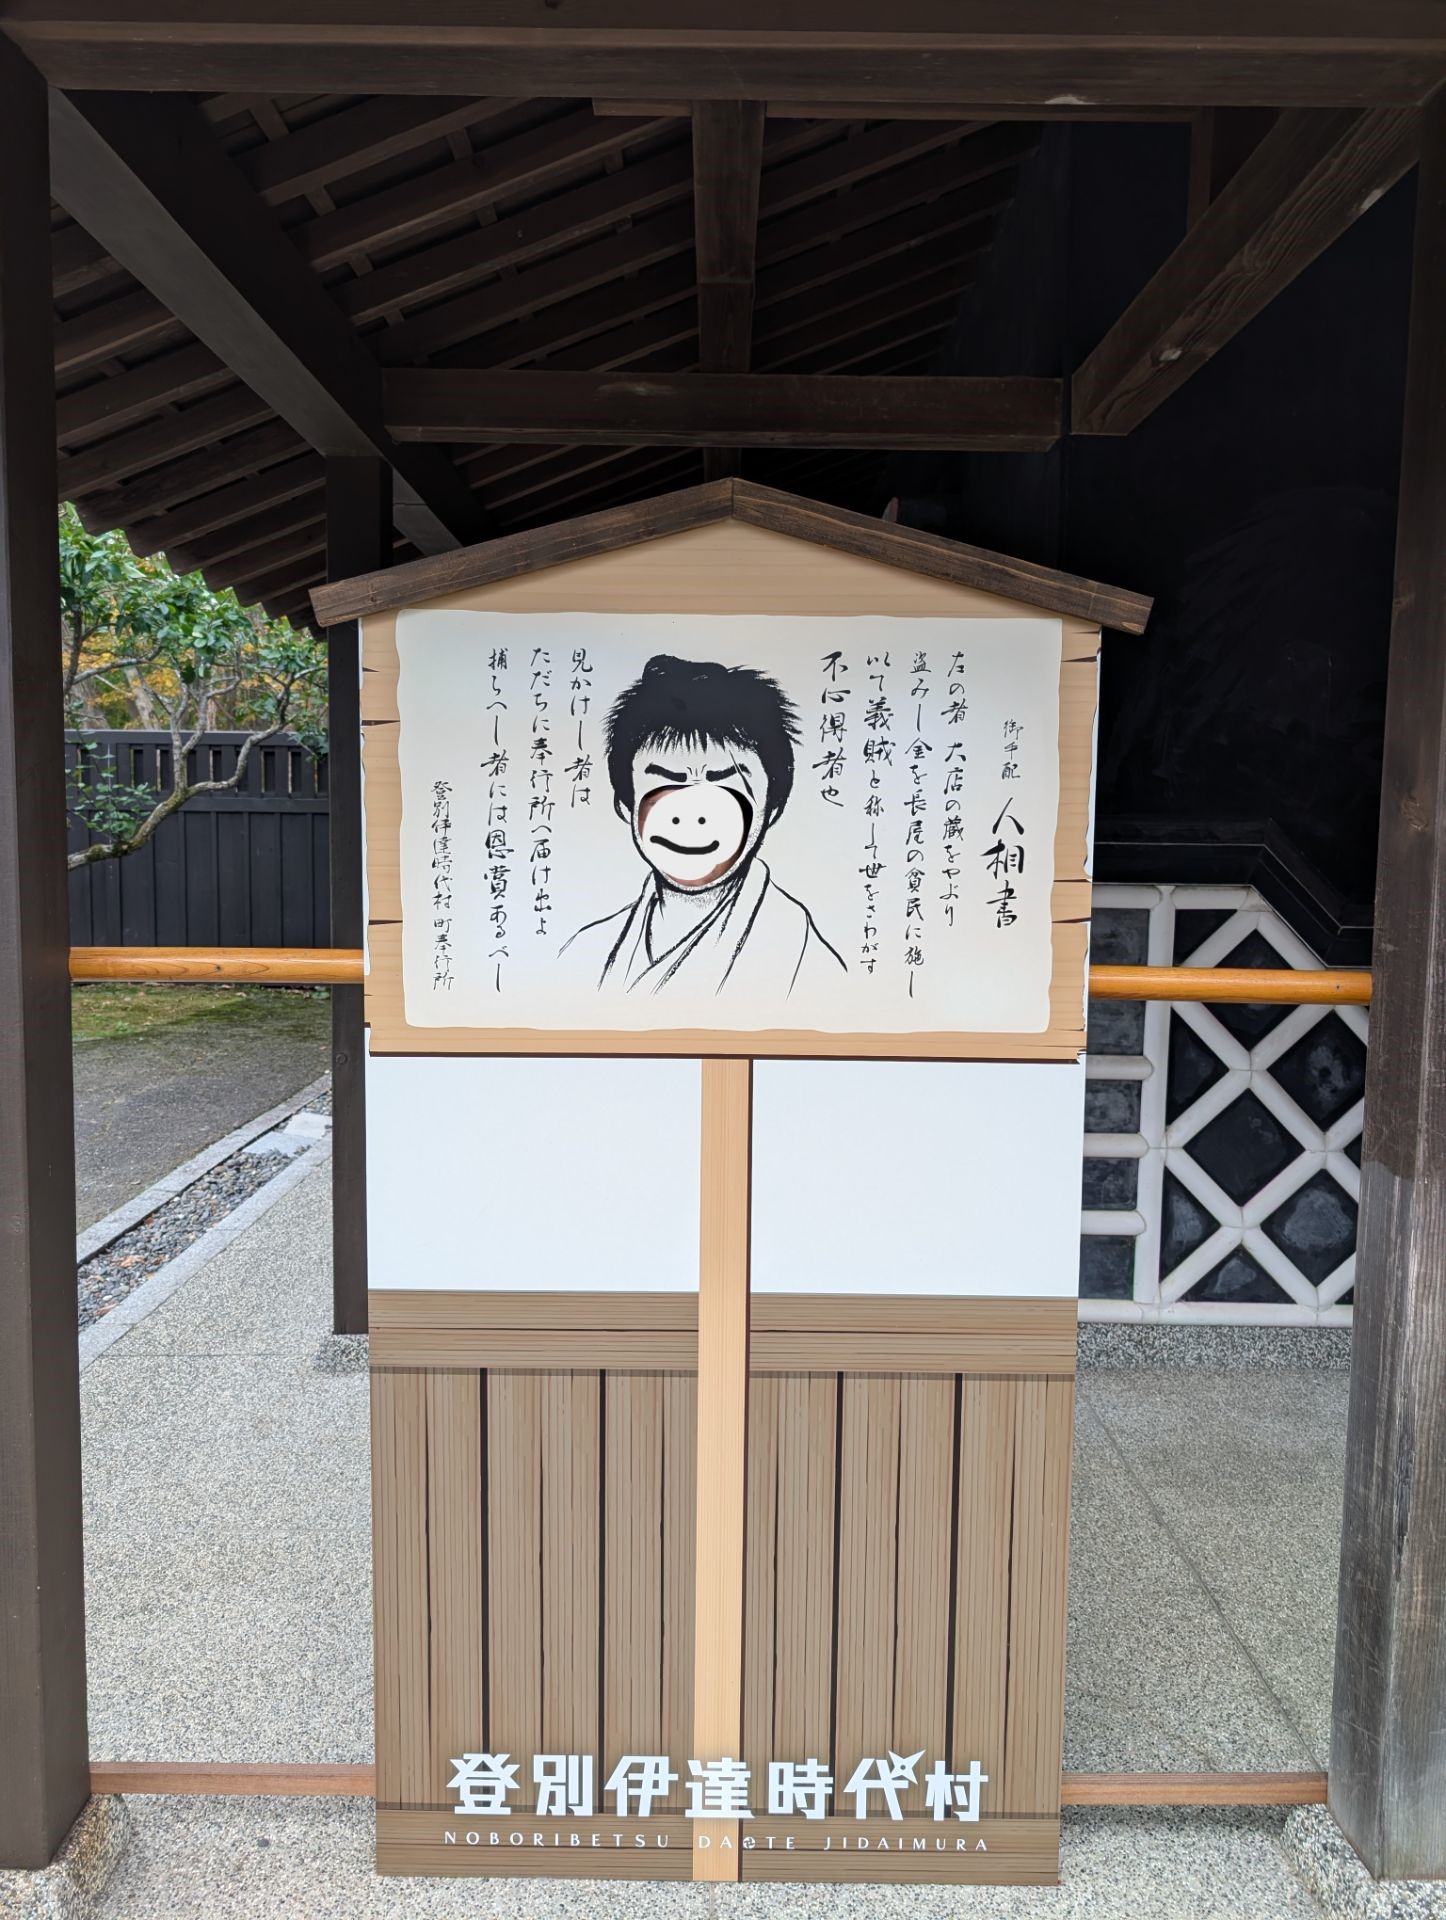 御手配 人相書
左の者 大店の蔵をやぶり
盗みし金を長屋の貧民に施し
以て義賊と称して世をさわがす
不心得者也
見かけし者は
ただちに奉行所へ届け出よ
捕らへし者には恩賞あるべし
登別伊達時代村 町奉行所
登別伊達時代村
NOBORIBETSU DATE JIDAIMURA